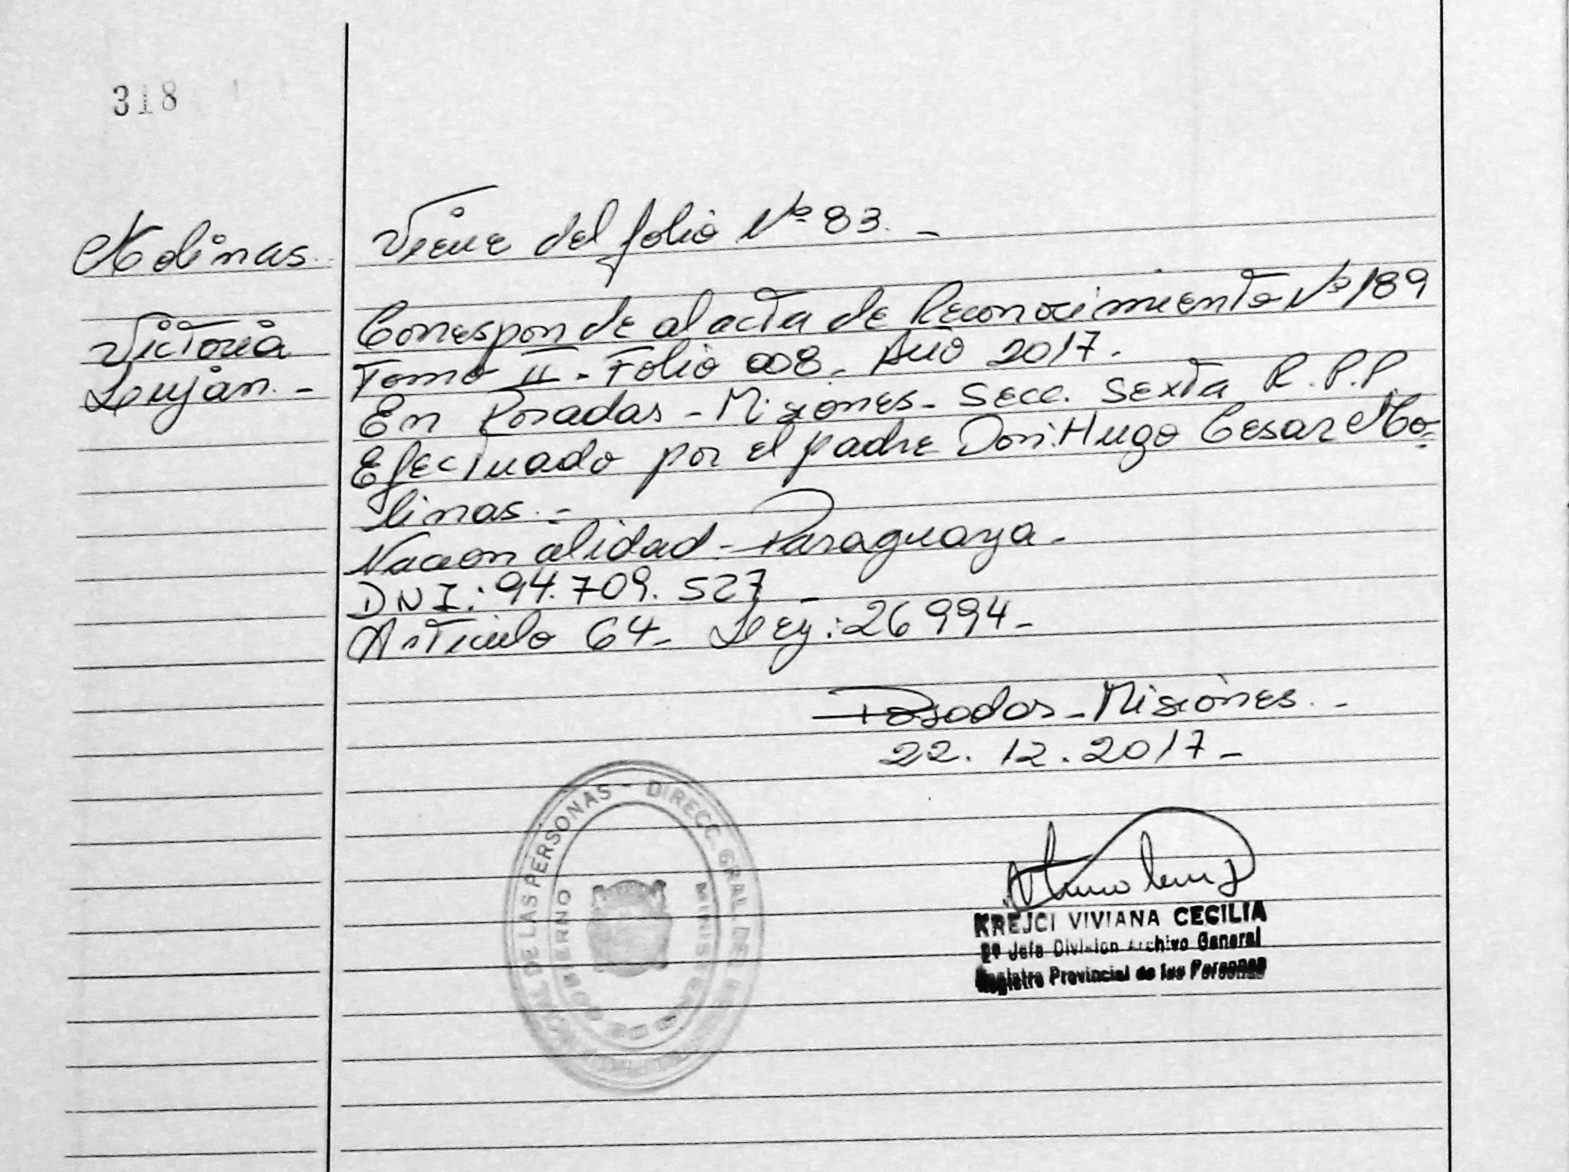 318
Molinas.
Victoria
Luján. -
Viene del folio Nº 83. -
Corresponde al acta de Reconocimiento Nº 189
Tomo II - Folio 008 - Año 2017.
En Posadas - Misiones - Secc. Sexta R.P.P.
Efectuado por el padre Don: Hugo Cesar Mo-
linas. -
Nacionalidad - Paraguaya.
DNI: 94.709.527 -
Articulo 64 - Ley: 26994 -
Posadas - Misiones. -
22.12.2017 -
DE LAS PERSONAS - DIRECC. GRAL. DEL
MINISTERIO DE GOBIERNO
KREJCI VIVIANA CECILIA
2º Jefa Division Archivo General
Registro Provincial de las Personas